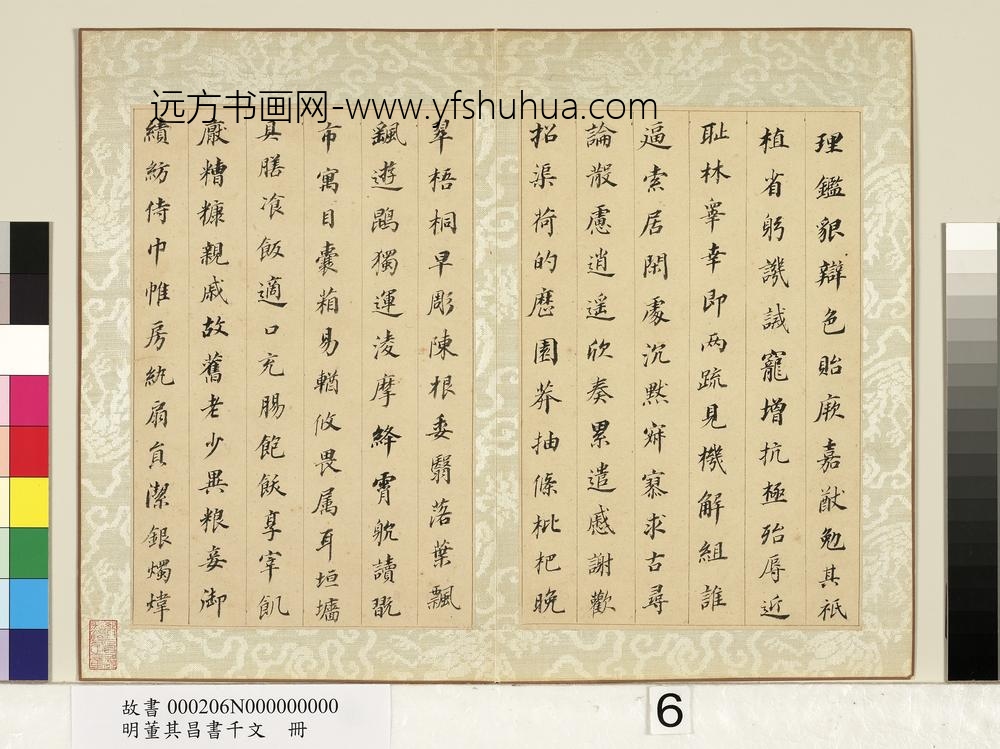 远方书画网-www.yfshuhua.com
理鑑貌辯色貽厥嘉猷勉其祗
植省躬譏誡寵增抗極殆辱近
耻林睾幸即两疏見機解組誰
逼索居閑處沉默寂寥求古尋
論散慮逍遥欣奏累遣慼謝歡
招渠荷的歷園莽抽條枇杷晚
翠梧桐早彫陳根委翳落葉飄
飖遊鵾獨運凌摩絳霄躭讀翫
市寓目囊箱易輶攸畏属耳垣墻
具膳飡飯適口充腸飽飫享宰飢
厭糟糠親戚故舊老少異粮妾御
績紡侍巾帷房紈扇員潔銀燭煒
故書 000206N000000000
明董其昌書千文 冊
6